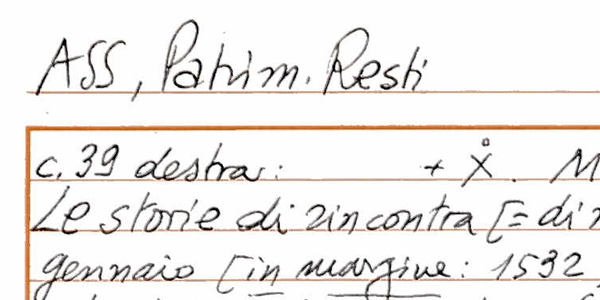 ASS, Patrim. Resti
c. 39 destra: + X̊. M
Le storie di rincontra [= di r
gennaio [in margine: 1532